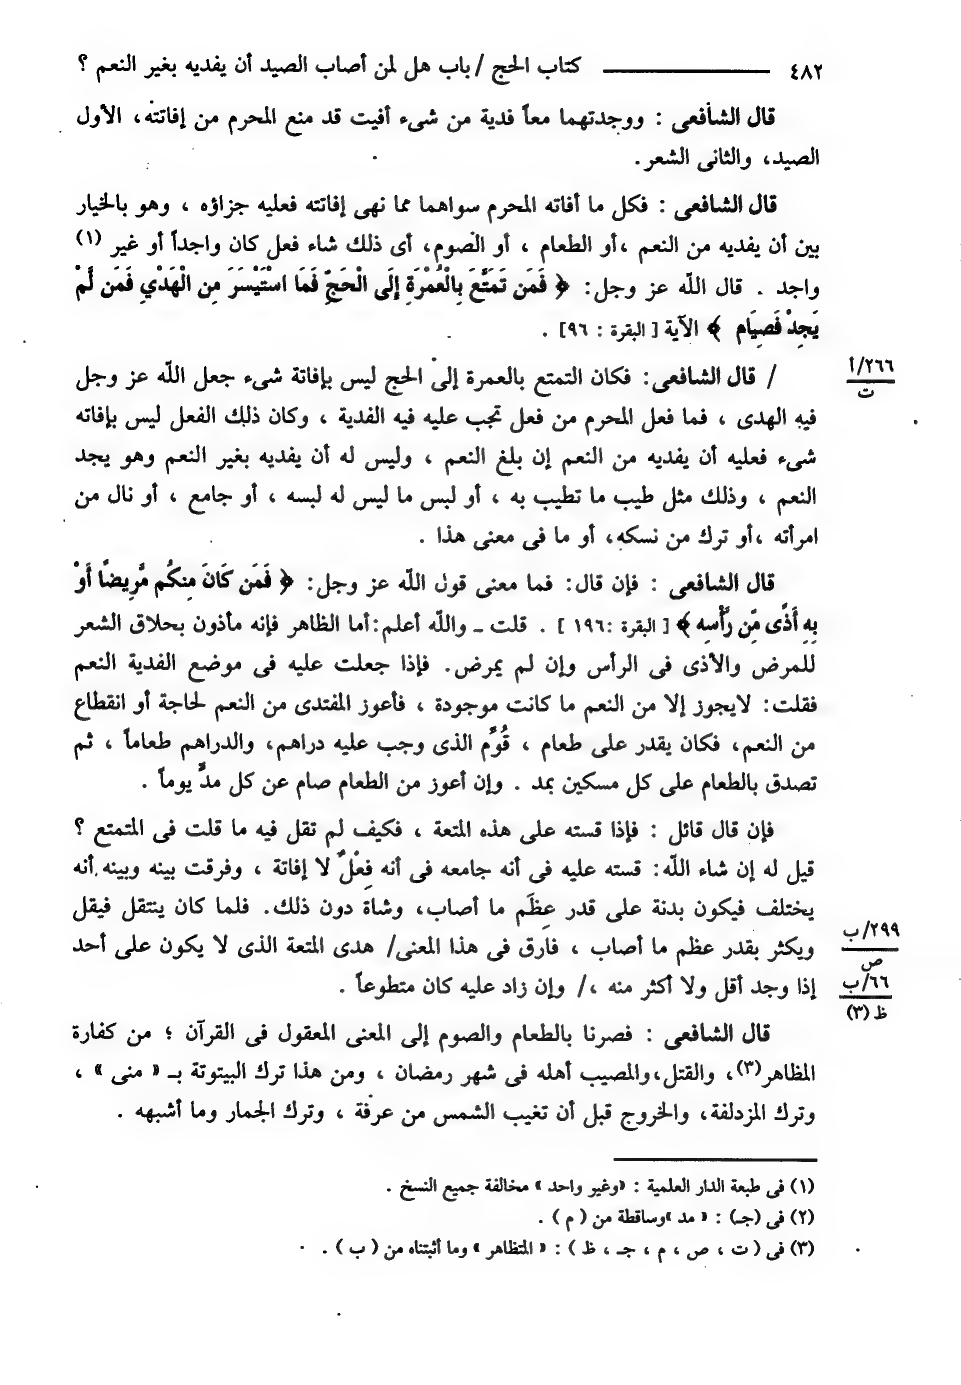 ٤٨٢ ــــــــــــ كتاب الحج / باب هل لمن أصاب الصيد أن يفديه بغير النعم ؟
قال الشافعى : ووجدتهما معاً فدية من شىء أفيت قد منع المحرم من إفاتته، الأول
الصيد، والثانى الشعر.
قال الشافعى : فكل ما أفاته المحرم سواهما مما نهى إفاتته فعليه جزاؤه ، وهو بالخيار
بين أن يفديه من النعم ،أو الطعام ، أو الصوم، أى ذلك شاء فعل كان واجداً أو غير (١)
واجد . قال اللّه عز وجل: ﴿ فَمَن تَمَتَّعَ بِالْعُمْرَةِ إِلَى الْحَجِّ فَمَا اسْتَيْسَرَ مِن الْهَدْيِ فَمَن لَّمْ
يَجِدْ فَصِيَام ﴾ الآية [ البقرة : ٩٦] .
/ قال الشافعى: فكان التمتع بالعمرة إلى الحج ليس بإفاتة شىء جعل اللّه عز وجل
فيه الهدى ، فما فعل المحرم من فعل تجب عليه فيه الفدية ، وكان ذلك الفعل ليس بإفاته
شىء فعليه أن يفديه من النعم إن بلغ النعم ، وليس له أن يفديه بغير النعم وهو يجد
النعم ، وذلك مثل طيب ما تطيب به ، أو لبس ما ليس له لبسه ، أو جامع ، أو نال من
امرأته ،أو ترك من نسكه، أو ما فى معنى هذا .
قال الشافعى : فإن قال: فما معنى قول اللّه عز وجل: ﴿ فَمَن كَانَ مِنكُم مَّرِيضًا أَوْ
بِهِ أَذًى مِّن رَّأْسِهِ ﴾ [ البقرة :١٩٦ ] . قلت ـ واللّه أعلم:أما الظاهر فإنه مأذون بحلاق الشعر
للمرض والأذى فى الرأس وإن لم يمرض. فإذا جعلت عليه فى موضع الفدية النعم
فقلت: لايجوز إلا من النعم ما كانت موجودة ، فأعوز المفتدى من النعم لحاجة أو انقطاع
من النعم، فكان يقدر على طعام ، قُوِّم الذى وجب عليه دراهم، والدراهم طعاماً ، ثم
تصدق بالطعام على كل مسكين بمد . وإن أعوز من الطعام صام عن كل مدٍّ يوماً .
فإن قال قائل : فإذا قسته على هذه المتعة ، فكيف لم تقل فيه ما قلت فى المتمتع ؟
قيل له إن شاء اللّه: قسته عليه فى أنه جامعه فى أنه فِعْلٌ لا إفاتة ، وفرقت بينه وبينه أنه
يختلف فيكون بدنة على قدر عِظَم ما أصاب، وشاة دون ذلك. فلما كان ينتقل فيقل
ويكثر بقدر عظم ما أصاب ، فارق فى هذا المعنى/ هدى المتعة الذى لا يكون على أحد
إذا وجد أقل ولا أكثر منه ،/ وإن زاد عليه كان متطوعاً .
قال الشافعى : فصرنا بالطعام والصوم إلى المعنى المعقول فى القرآن ؛ من كفارة
المظاهر(٣)، والقتل،والمصيب أهله فى شهر رمضان ، ومن هذا ترك البيتوتة بـ « منى » ،
وترك المزدلفة، والخروج قبل أن تغيب الشمس من عرفة ، وترك الجمار وما أشبهه .
٢٦٦/أ
ت
٢٩٩/ب
ص
٦٦/ب
ظ (٣)
(١) فى طبعة الدار العلمية : «وغير واحد » مخالفة جميع النسخ .
(٢) فى (جـ) : « مد »وساقطة من ( م ) .
(٣) فى ( ت ، ص ، م ، جـ ، ظ ) : « المتظاهر » وما أثبتناه من ( ب ) .